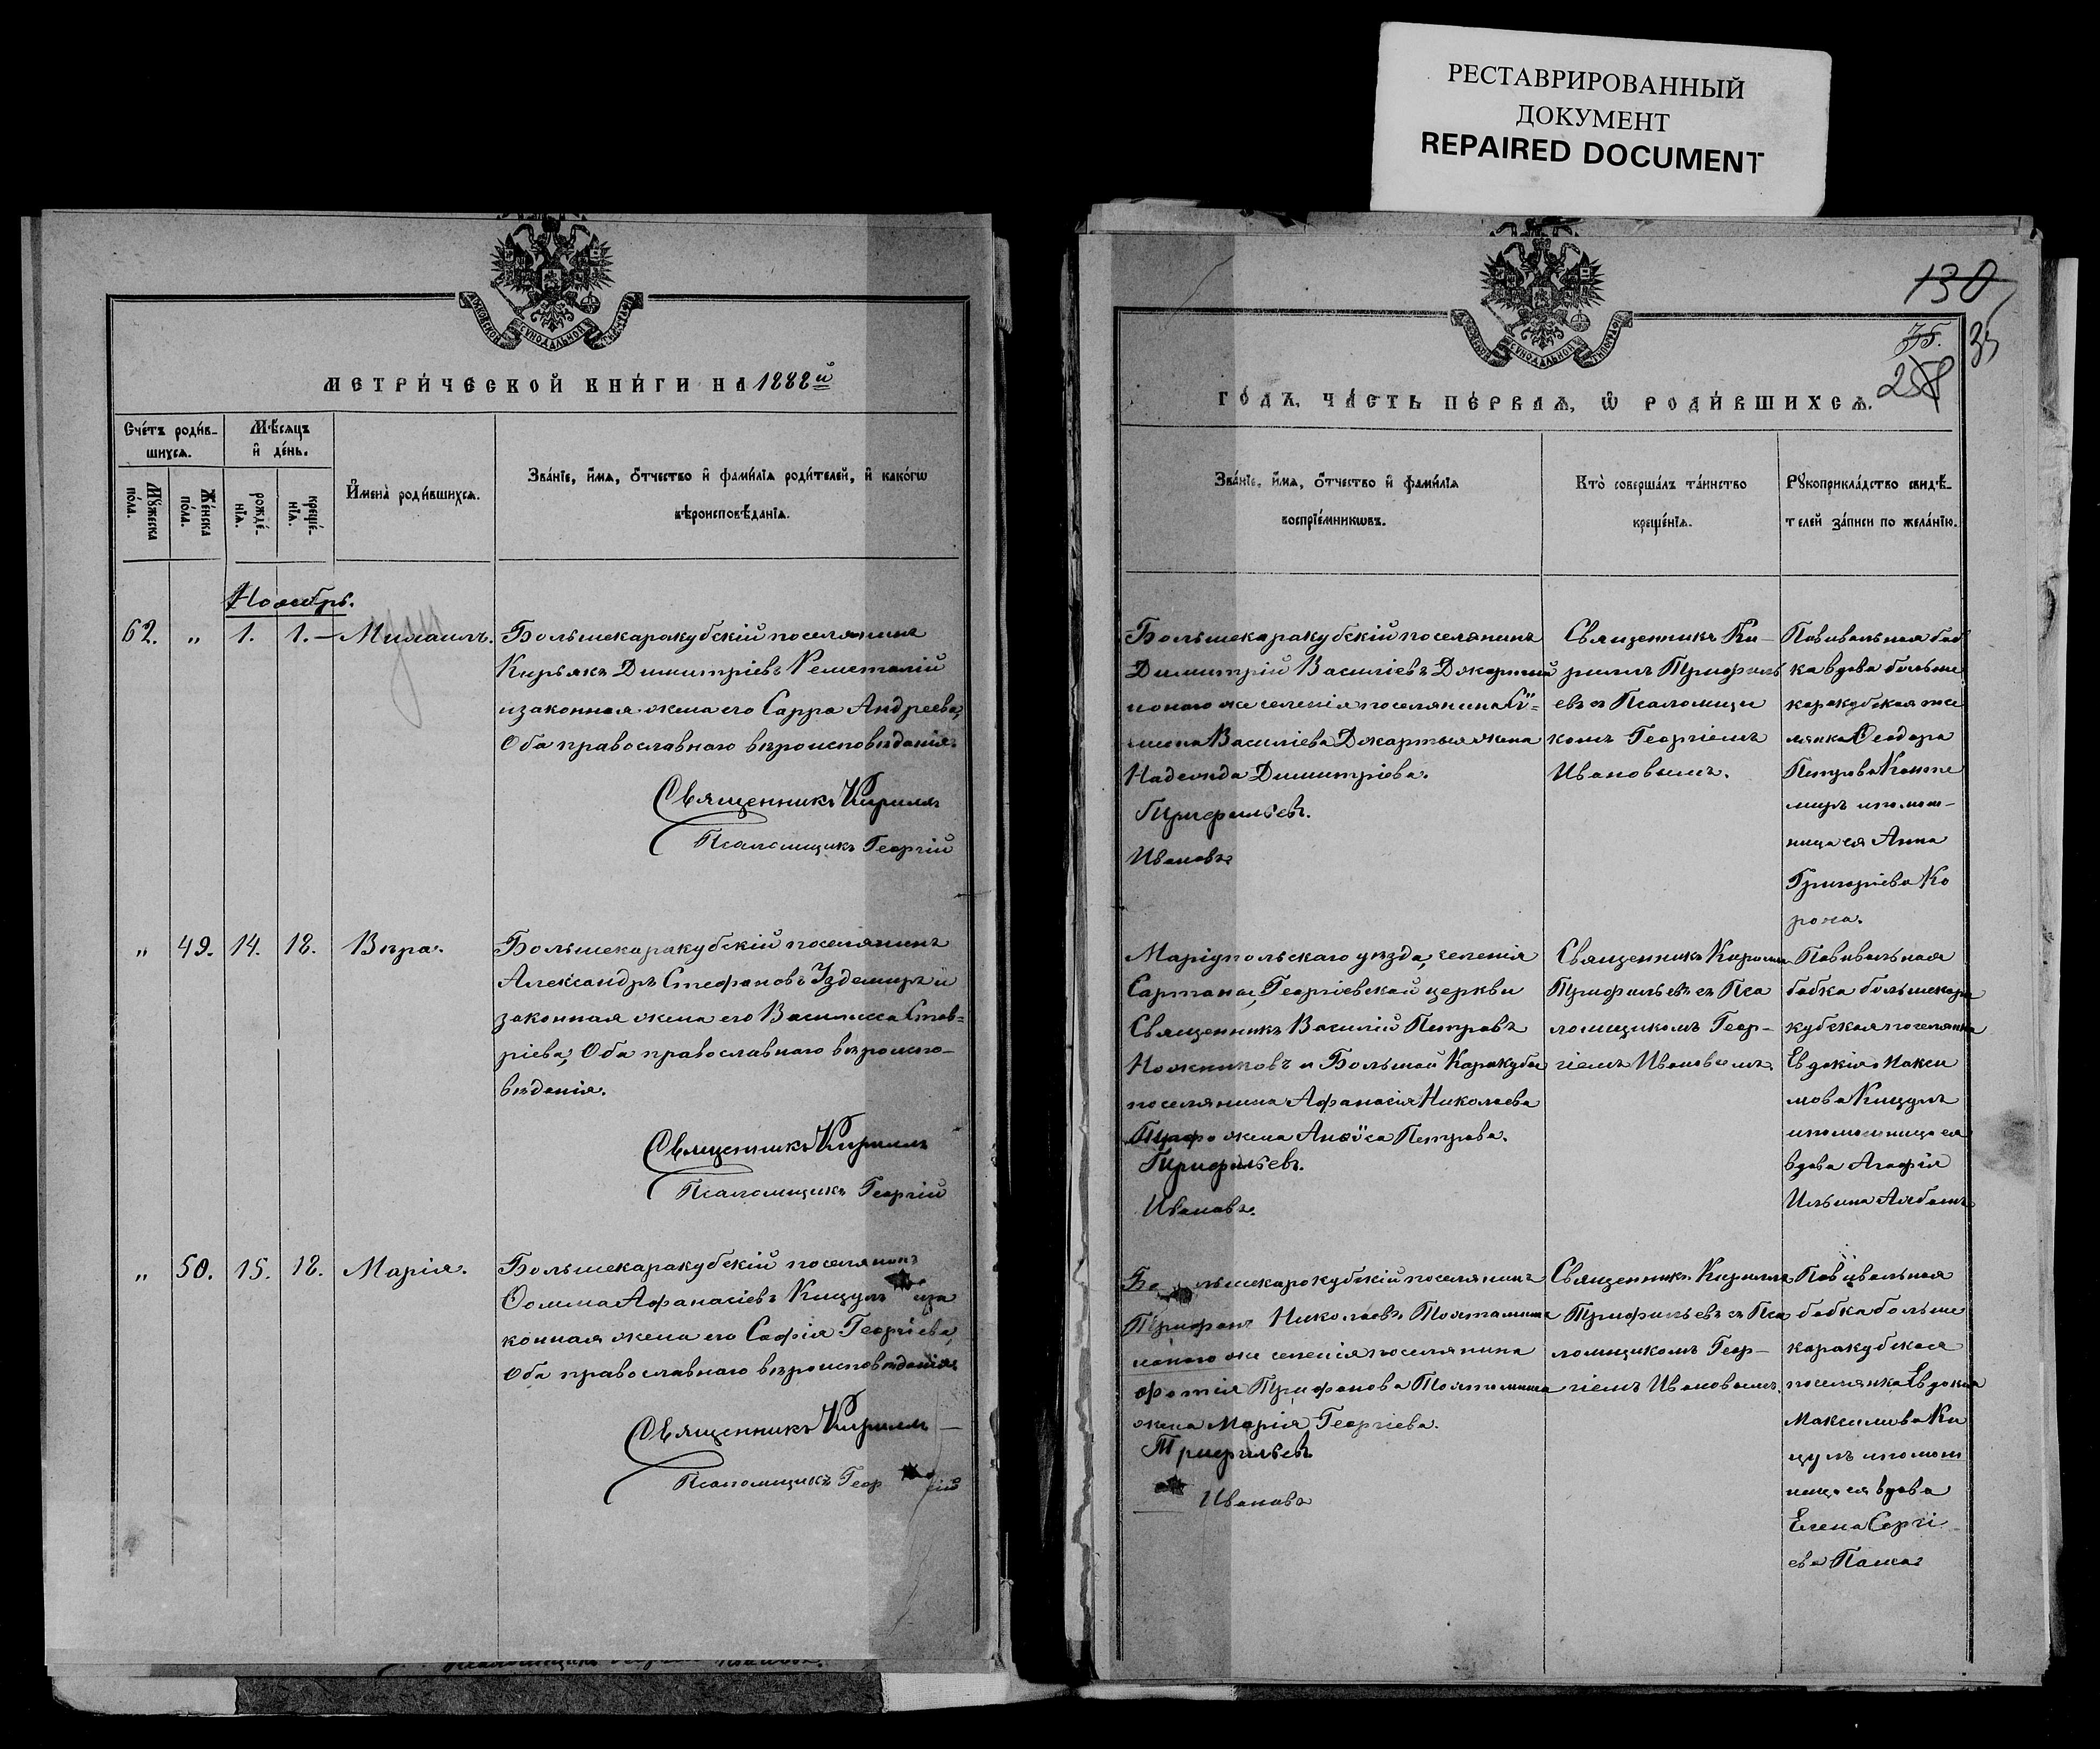 РЕСТАВРИРОВАННЫЙ
ДОКУМЕНТ
REPAIRED DOCUMENT
МОСКОВСКОЙ СѴНОДАЛЬНОЙ
МЕТРИ́ЧЕСКОЙ КНИ́ГИ НА 1888й
Сче́тъ роди́в-
шихсѧ.
Мѣ́сѧцъ
и҆ де́нь.
Мꙋ́жеска
по́ла.
Же́нска
по́ла.
рожде́-
нїѧ.
креще́-
нїѧ.
И҆мена̀ роди́вшихсѧ.
Зва́нїе, и҆́мѧ, ѻ҆́тчество и҆ фами́лїѧ роди́телей, и҆ како́гѡ
вѣроисповѣ́данїѧ.
Ноябрь.
62. „ 1. 1. — Михаилъ.
Большекаракубскій поселянинъ
Кирьякъ Димитріевъ
и законная жена его Сарра Андреева,
Оба православнаго вѣроисповѣданія.
Священникъ Кириллъ
Псаломщикъ Георгій
„ 49. 14. 18. Вѣра.
Большекаракубскій поселянинъ
Александръ Стефановъ Уздемиръ и
законная жена его Василисса Гав-
ріева; Оба православнаго вѣроиспо-
вѣданія.
Священникъ Кириллъ
Псаломщикъ Георгій
„ 50. 15. 18. Марія.
Большекаракубскій поселянинъ
Ѳома Афанасіевъ Кицулъ и за
конная жена его Софія Георгіева,
Оба православнаго вѣроисповѣданія
Священникъ Кириллъ
Псаломщикъ Георгій
130
35
75.
258
СѴНОДАЛЬНОЙ ТИПОГРАФІИ
ГО́ДЪ, ЧА́СТЬ ПЕ́РВАѦ, Ѡ҆ РОДИ́ВШИХСѦ.
Зва́нїе, и҆́мѧ, ѻ҆́тчество и҆ фами́лїѧ
воспрїе́мникѡвъ.
Кто̀ соверша́лъ та́инство
креще́нїѧ.
Рꙋкоприкла́дство свидѣ́-
телей за́писи по жела́нїю.
Большекаракубскій поселянинъ
Димитрій Василіевъ
и онаго же селенія поселянина Си-
меона Василіева жена
Надежда Димитріева.
Трифильевъ.
Ивановъ
Священникъ Ки-
риллъ Трифиль
евъ съ Псаломщи
комъ Георгіемъ
Ивановымъ.
Повивальная баб
ка вдова больше
каракубская посе
лянка Ѳеодора
Петрова
и помощ-
ница ея Анна
Григоріева Ко
рона.
Маріупольскаго уѣзда, селенія
Сартаны, Георгіевской церкви
Священникъ Василій Петровъ
Ножниковъ и Большой Каракубы
поселянина Афанасія Николаева
жена Анѳуса Петрова.
Трифильевъ.
Ивановъ.
Священникъ Кириллъ
Трифильевъ съ Пса
ломщикомъ Геор-
гіемъ Ивановымъ.
Повивальная
бабка большекара
кубская поселянка
Евдокія Макси
мова Кицулъ
и помощница ея
вдова Агафія
Ильина
Большекаракубскій поселянинъ
Трифонъ Николаевъ
и онаго же селенія поселянина
Фотія Трифонова
жена Марія Георгіева.
Трифильевъ
Ивановъ
Священникъ Кириллъ
Трифильевъ съ Пса
ломщикомъ Геор-
гіемъ Ивановымъ.
Повивальная
бабка больше
каракубская
поселянка Евдокія
Максимова Ки
цулъ и помощ
ница ея вдова
Елена Сергі
ева